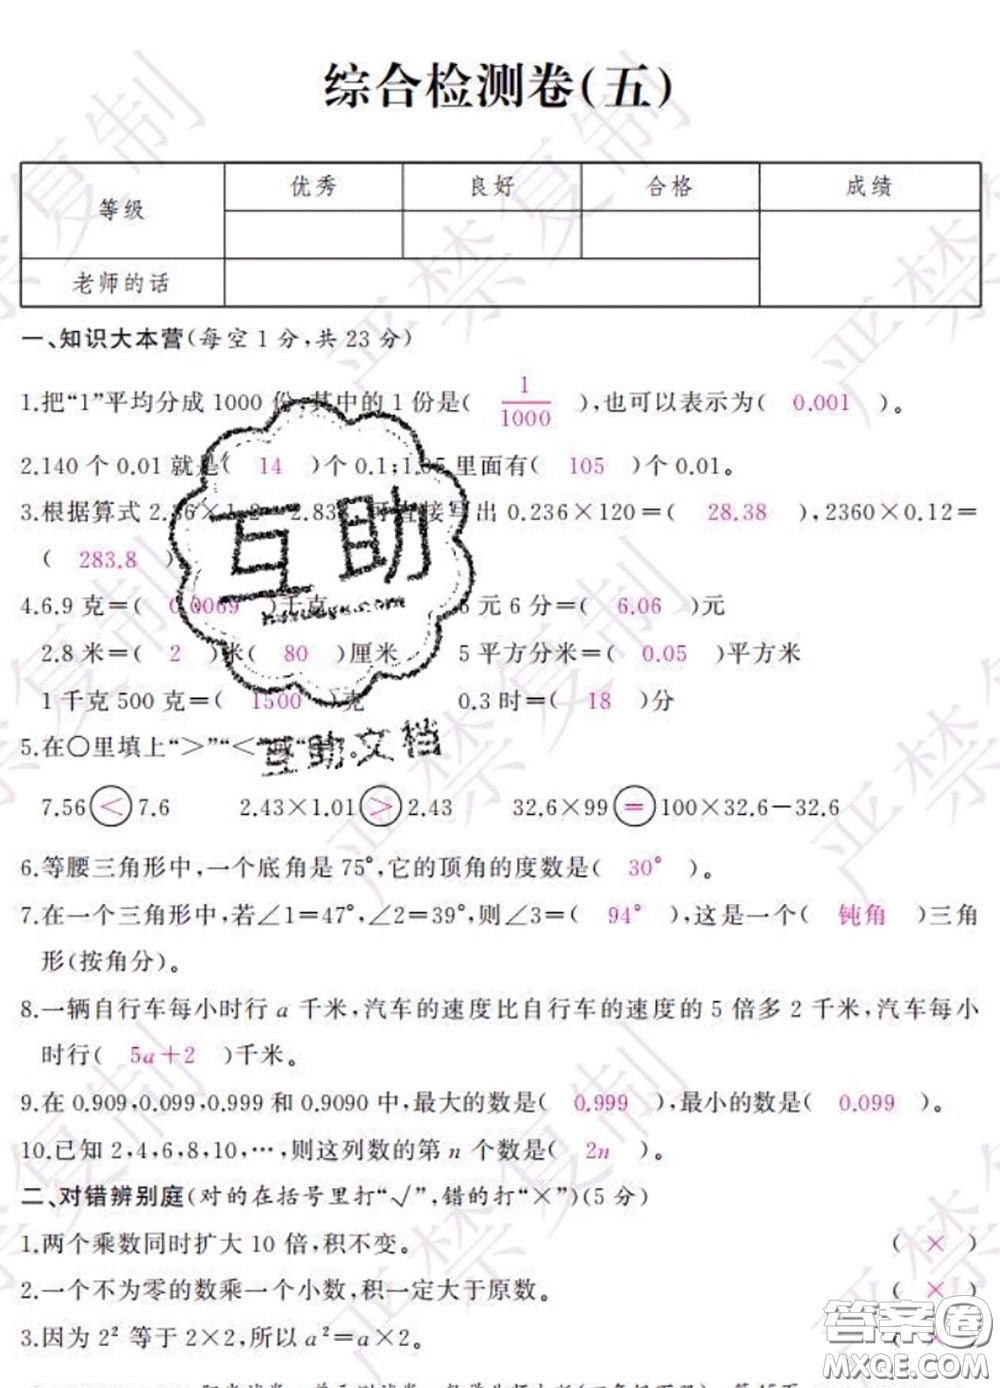 综合检测卷(五)
等级 优秀 良好 合格 成绩
老师的话
一、知识大本营(每空1分,共23分)
1.把“1”平均分成1000份,其中的1份是( 1/1000 ),也可以表示为( 0.001 )。
2.140个0.01就是( 14 )个0.1;1.05里面有( 105 )个0.01。
3.根据算式2.36×1.2=2.83 可直接写出0.236×120=( 28.38 ),2360×0.12=
( 283.8 )
4.6.9克=( 0.0069 )千克 6元6分=( 6.06 )元
2.8米=( 2 )米( 80 )厘米 5平方分米=( 0.05 )平方米
1千克500克=( 1500 )克 0.3时=( 18 )分
5.在○里填上“>”“<”
7.56<7.6 2.43×1.01>2.43 32.6×99=100×32.6-32.6
6.等腰三角形中,一个底角是75°,它的顶角的度数是( 30° )。
7.在一个三角形中,若∠1=47°,∠2=39°,则∠3=( 94° ),这是一个( 钝角 )三角
形(按角分)。
8.一辆自行车每小时行a千米,汽车的速度比自行车的速度的5倍多2千米,汽车每小
时行( 5a+2 )千米。
9.在0.909,0.099,0.999和0.9090中,最大的数是( 0.999 ),最小的数是( 0.099 )。
10.已知2,4,6,8,10,…,则这列数的第n个数是( 2n )。
二、对错辨别庭(对的在括号里打“√”,错的打“×”)(5分)
1.两个乘数同时扩大10倍,积不变。 ( × )
2.一个不为零的数乘一个小数,积一定大于原数。 ( × )
3.因为2²等于2×2,所以a²=a×2。 ( × )
互助
互助文档
严禁复制
答案圈
MXQE.COM